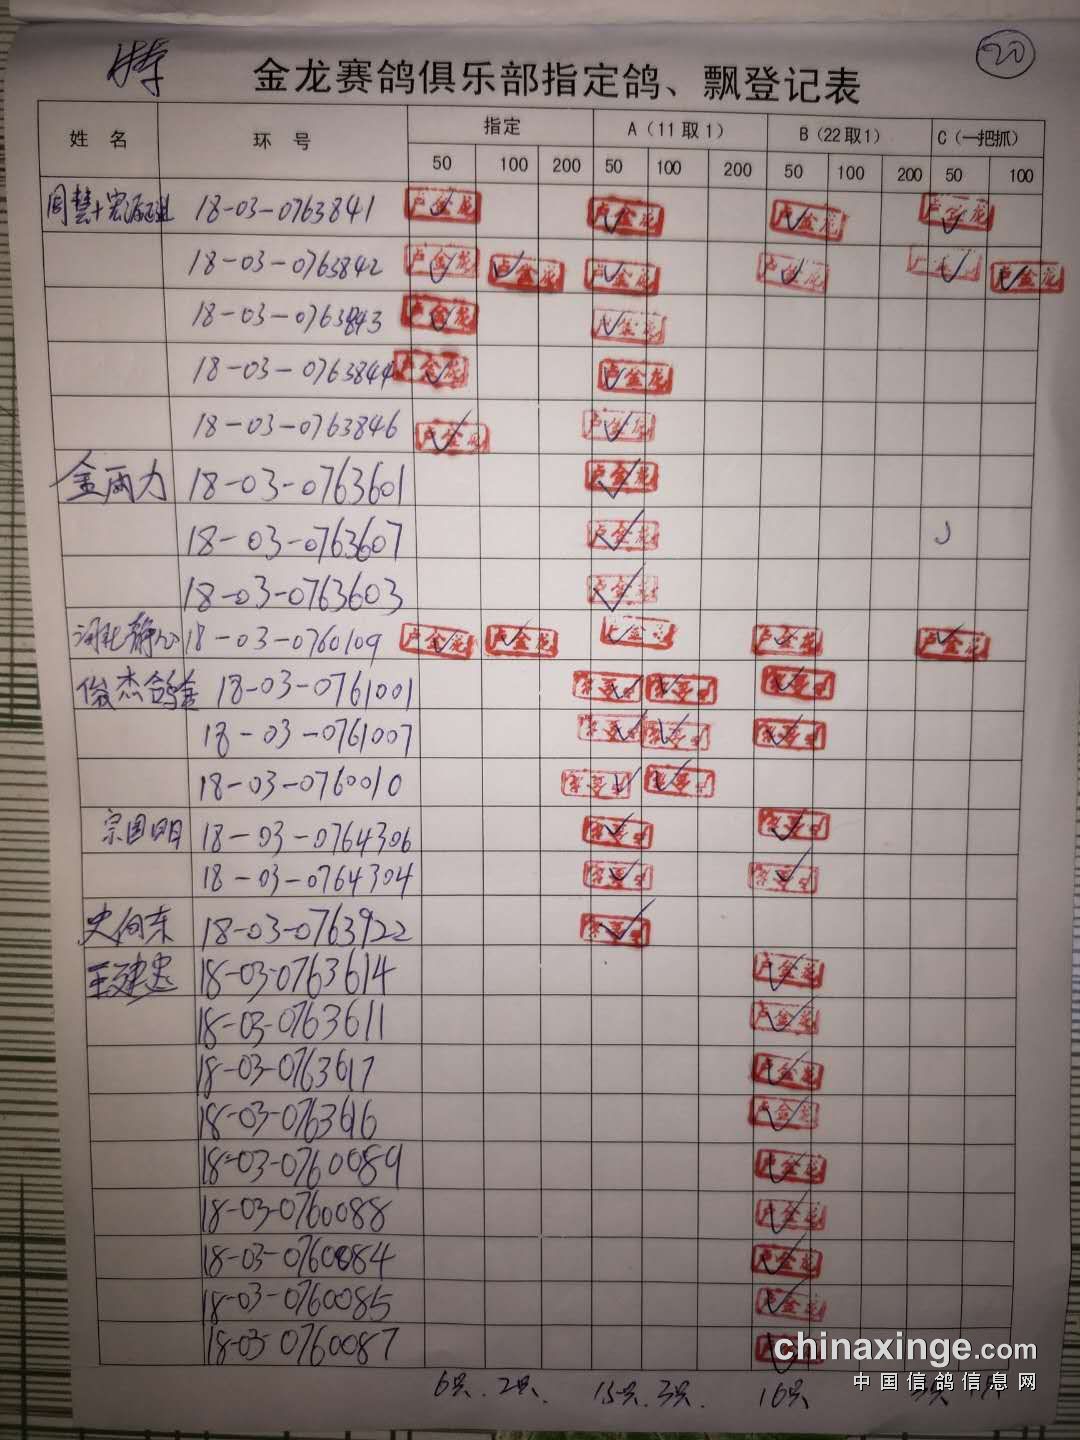 特
20
金龙赛鸽俱乐部指定鸽、飘登记表
姓 名 环 号 指定 A(11取1) B(22取1) C(一把抓)
50 100 200 50 100 200 50 100 200 50 100
18-03-0763841 卢金龙 卢金龙 卢金龙 卢金龙
18-03-0763842 卢金龙 卢金龙 卢金龙 卢金龙 卢金龙 卢金龙
18-03-0763843 卢金龙 卢金龙
18-03-0763844 卢金龙 卢金龙
18-03-0763846 卢金龙 卢金龙
金雨力 18-03-0763601 卢金龙
18-03-0763607 卢金龙
18-03-0763603 卢金龙
河北静心 18-03-0760109 卢金龙 卢金龙 卢金龙 卢金龙 卢金龙
俊杰鸽舍 18-03-0761001
18-03-0761007
18-03-0760010
宗国明 18-03-0764306
18-03-0764304
史向东 18-03-0763922
王建忠 18-03-0763614 卢金龙
18-03-0763611 卢金龙
18-03-0763617 卢金龙
18-03-0763616 卢金龙
18-03-0760089 卢金龙
18-03-0760088 卢金龙
18-03-0760084 卢金龙
18-03-0760085 卢金龙
18-03-0760087
6只. 2只. 15只. 3只. 16只 3只 1只
chinaxinge.com
中国信鸽信息网